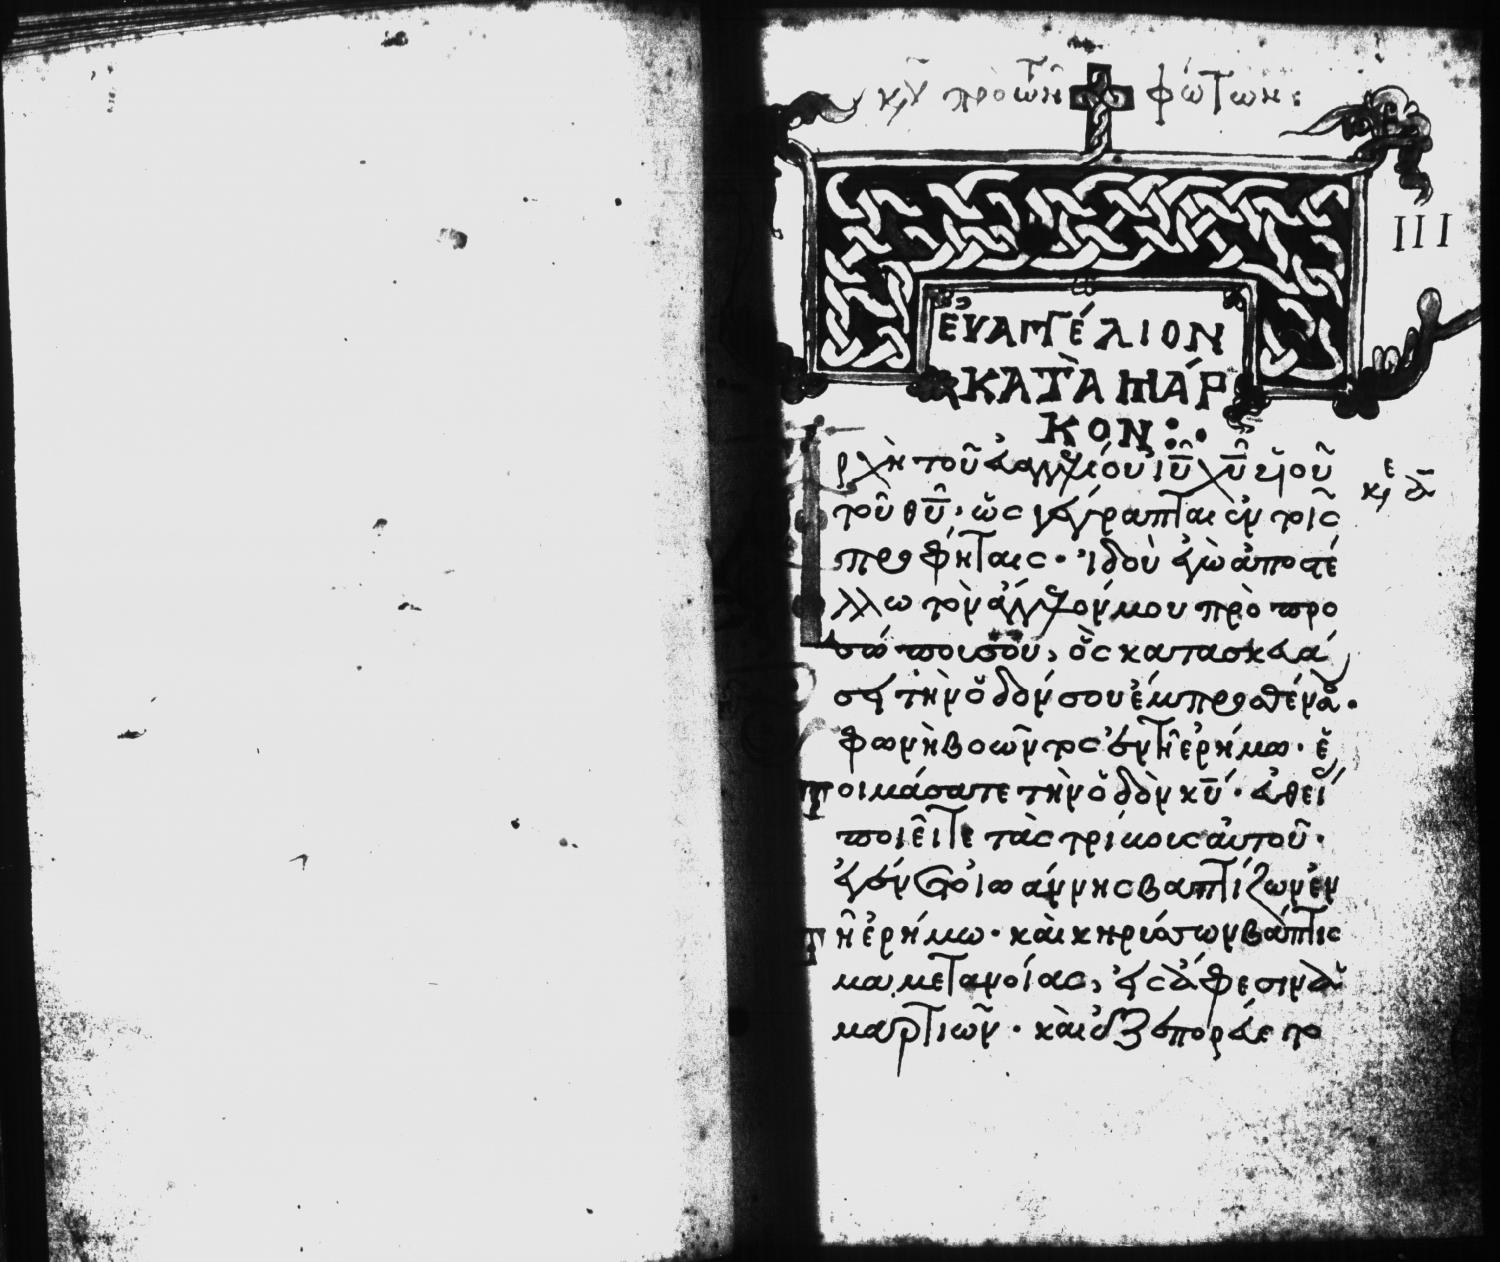 κυ πρὸ τῶν φώτων:
III
ΕΥΑΓΓΕΛΙΟΝ
ΚΑΤᾺ ΜΆΡ
ΚΟΝ:·
Ἀρχὴ τοῦ εὐαγγελίου ἰῦ χῦ υἱοῦ
κε α
τοῦ θῦ· ὡς γέγραπται ἐν τοῖς
προφήταις· ἰδοὺ ἐγὼ ἀποστέ
λλω τὸν ἄγγελόν μου πρὸ προ
σώπου σου, ὃς κατασκευά
σει τὴν ὁδόν σου ἔμπροσθέν σου·
φωνὴ βοῶντος ἐν τῇ ἐρήμω· ἑ
τοιμάσατε τὴν ὁδὸν κῦ· εὐθεί
ποιεῖτε τὰς τρίβους αὐτοῦ·
ἐγένετο ἰωάννης βαπτίζων ἐν
τῇ ἐρήμω· καὶ κηρύσσων βάπτισ
μα μετανοίας, εἰς ἄφεσιν ἁ
μαρτιῶν· καὶ ἐξεπορεύετο